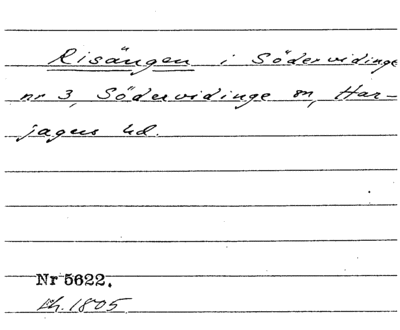 Risängen i Södervidinge
nr 3, Södervidinge sn, Har-
jagers hd.
Nr 5622.
Lh. 1805